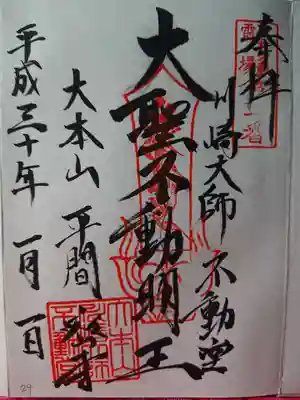 奉拝
川崎大師 不動堂
大聖不動明王
大本山 平間寺
平成三十年 一月 一日
24